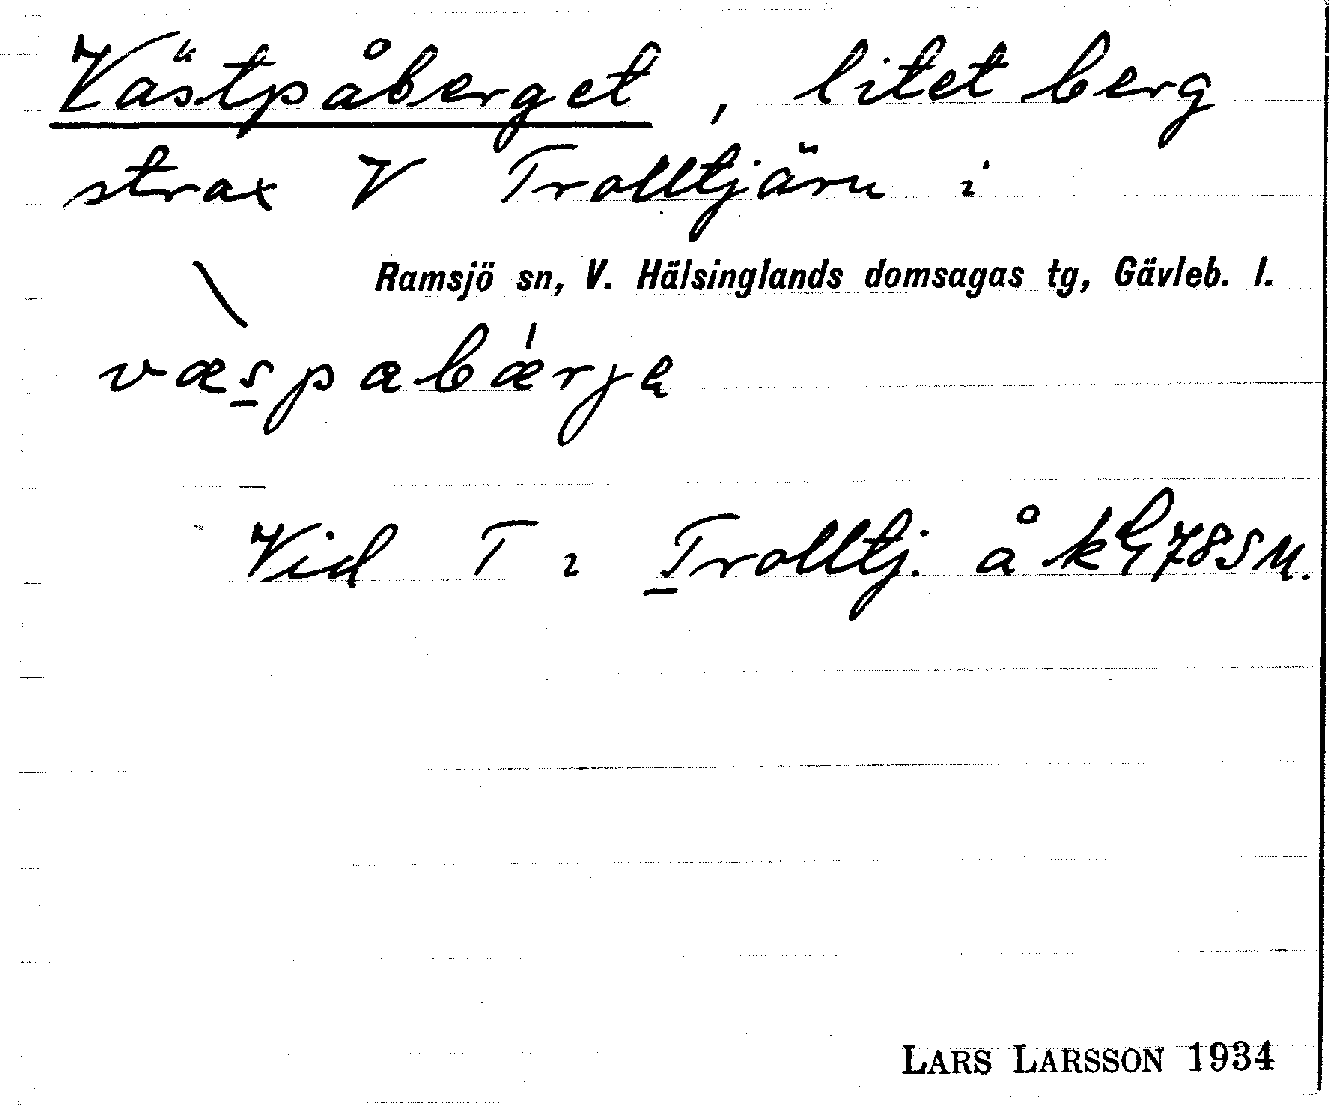 Västpåberget, litet berg
strax V Trolltjärn i
Ramsjö sn, V. Hälsinglands domsagas tg, Gävleb. l.
væspabærje
Vid T i Trolltj. å
LARS LARSSON 1934